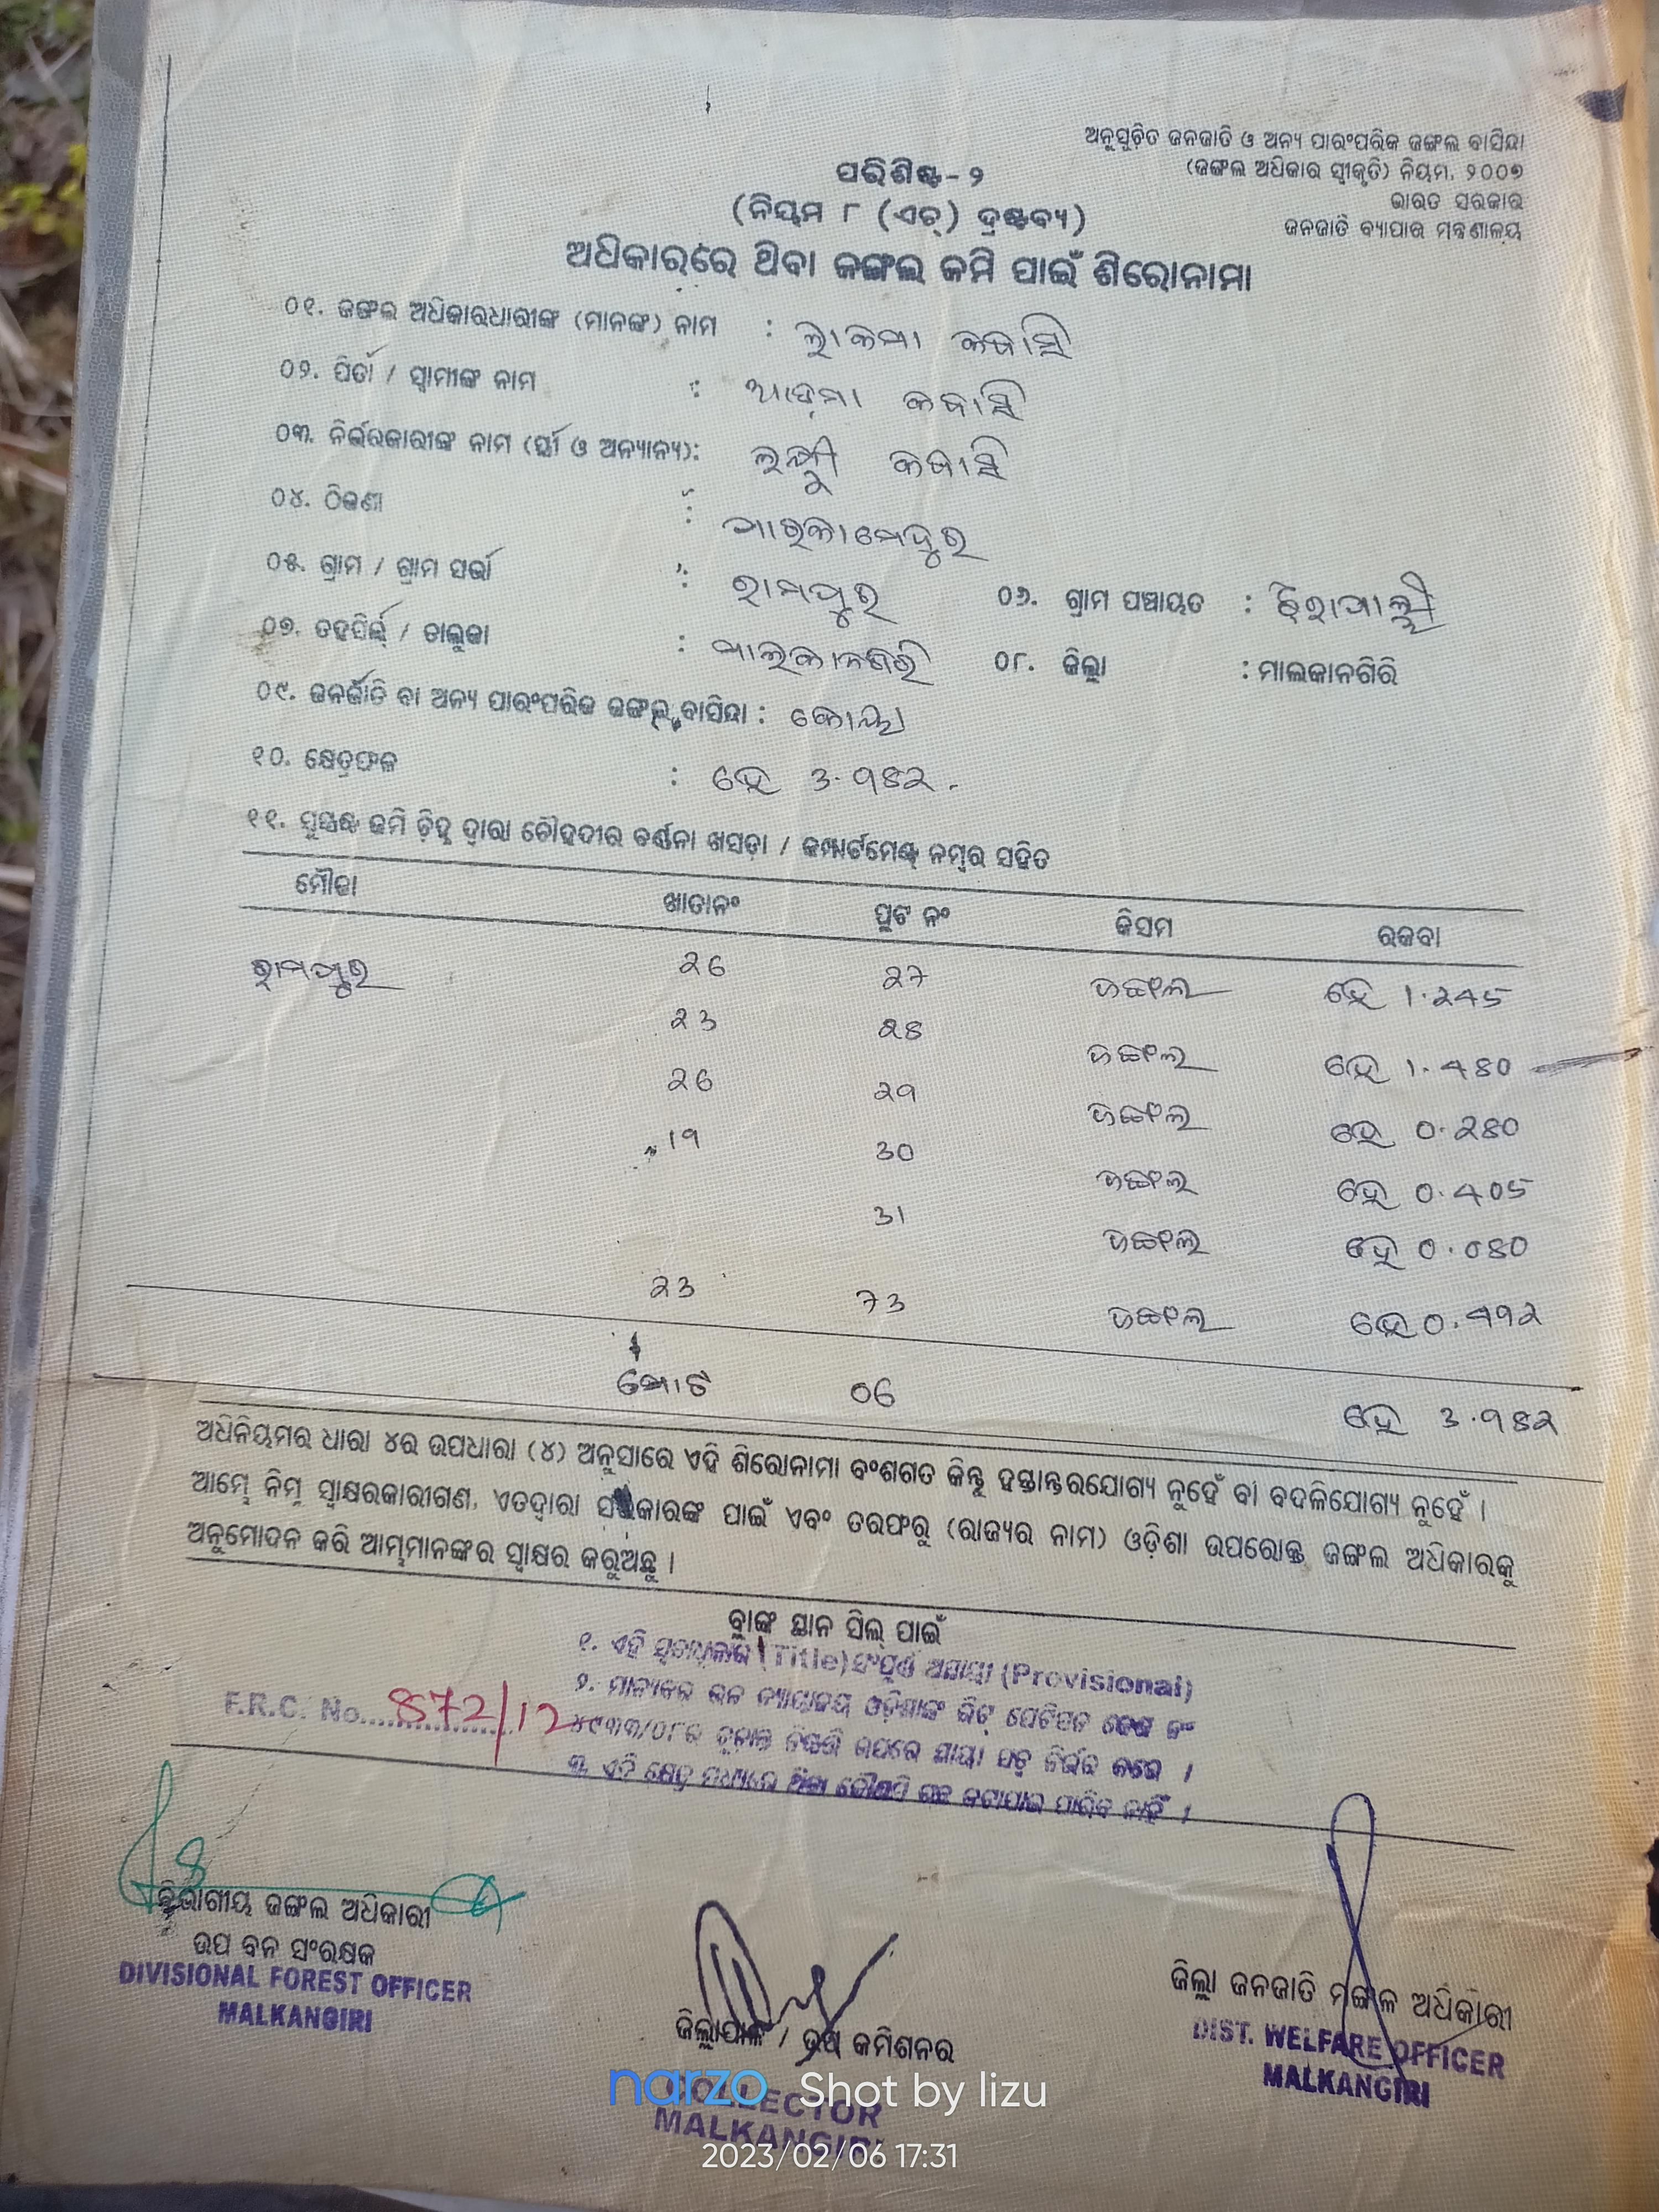 ଅନୁସୂଚିତ ଜନଜାତି ଓ ଅନ୍ୟ ପାରଂପରିକ ଜଙ୍ଗଲ ବାସିନ୍ଦା
(ଜଙ୍ଗଲ ଅଧିକାର ସ୍ୱୀକୃତି) ନିୟମ, ୨୦୦୭
ଭାରତ ସରକାର
ଜନଜାତି ବ୍ୟାପାର ମନ୍ତ୍ରଣାଳୟ
ପରିଶିଷ୍ଟ-୨
(ନିୟମ ୮ (ଏଚ୍) ଦ୍ରଷ୍ଟବ୍ୟ)
ଅଧିକାରରେ ଥିବା ଜଙ୍ଗଲ ଜମି ପାଇଁ ଶିରୋନାମା
୦୧. ଜଙ୍ଗଲ ଅଧିକାରଧାରୀଙ୍କ (ମାନଙ୍କ) ନାମ :
୦୨. ପିତା / ସ୍ୱାମୀଙ୍କ ନାମ :
୦୩. ନିର୍ଭରକାରୀଙ୍କ ନାମ (ସ୍ତ୍ରୀ ଓ ଅନ୍ୟାନ୍ୟ):
୦୪. ଠିକଣା :
୦୫. ଗ୍ରାମ / ଗ୍ରାମ ସଭା : ରାମପୁର ୦୬. ଗ୍ରାମ ପଞ୍ଚାୟତ :
୦୭. ତହସିଲ୍ / ତାଲୁକା : ମାଲକାନଗିରି ୦୮. ଜିଲ୍ଲା : ମାଲକାନଗିରି
୦୯. ଜନଜାତି ବା ଅନ୍ୟ ପାରଂପରିକ ଜଙ୍ଗଲ ବାସିନ୍ଦା : କୋୟା
୧୦. କ୍ଷେତ୍ରଫଳ : ହେ 3.982.
୧୧. ସୁସ୍ପଷ୍ଟ ଜମି ଚିହ୍ନ ଦ୍ୱାରା ଚୌହଦୀର ବର୍ଣ୍ଣନା ଖସଡ଼ା / କମ୍ପାର୍ଟମେଣ୍ଟ ନମ୍ବର ସହିତ
ମୌଜା ଖାତାନଂ ପ୍ଲଟ ନଂ କିସମ ରକବା
ରାମପୁର 26 27 ଜଙ୍ଗଲ ହେ 1.245
23 28 ଜଙ୍ଗଲ ହେ 1.480
26 29 ଜଙ୍ଗଲ ହେ 0.280
19 30 ଜଙ୍ଗଲ ହେ 0.405
31 ଜଙ୍ଗଲ ହେ 0.080
23 73 ଜଙ୍ଗଲ ହେ 0.492
ମୋଟ 06 ହେ 3.982
ଅଧିନିୟମର ଧାରା ୪ର ଉପଧାରା (୪) ଅନୁସାରେ ଏହି ଶିରୋନାମା ବଂଶଗତ କିନ୍ତୁ ହସ୍ତାନ୍ତରଯୋଗ୍ୟ ନୁହେଁ ବା ବଦଳିଯୋଗ୍ୟ ନୁହେଁ ।
ଆମ୍ଭେ ନିମ୍ନ ସ୍ୱାକ୍ଷରକାରୀଗଣ, ଏତଦ୍ୱାରା ସରକାରଙ୍କ ପାଇଁ ଏବଂ ତରଫରୁ (ରାଜ୍ୟର ନାମ) ଓଡ଼ିଶା ଉପରୋକ୍ତ ଜଙ୍ଗଲ ଅଧିକାରକୁ
ଅନୁମୋଦନ କରି ଆମ୍ଭମାନଙ୍କର ସ୍ୱାକ୍ଷର କରୁଅଛୁ ।
ବ୍ଲାଙ୍କ ସ୍ଥାନ ସିଲ୍ ପାଇଁ
୧. ଏହି (Title) ସଂପୂର୍ଣ୍ଣ ଅସ୍ଥାୟୀ (Provisional)
F.R.C. No. 872/12
ବିଭାଗୀୟ ଜଙ୍ଗଲ ଅଧିକାରୀ
ଉପ ବନ ସଂରକ୍ଷକ
DIVISIONAL FOREST OFFICER
MALKANGIRI
ଜିଲ୍ଲାପାଳ / ଉପ କମିଶନର
COLLECTOR
MALKANGIRI
ଜିଲ୍ଲା ଜନଜାତି ମଙ୍ଗଳ ଅଧିକାରୀ
DIST. WELFARE OFFICER
MALKANGIRI
narzo Shot by lizu
2023/02/06 17:31